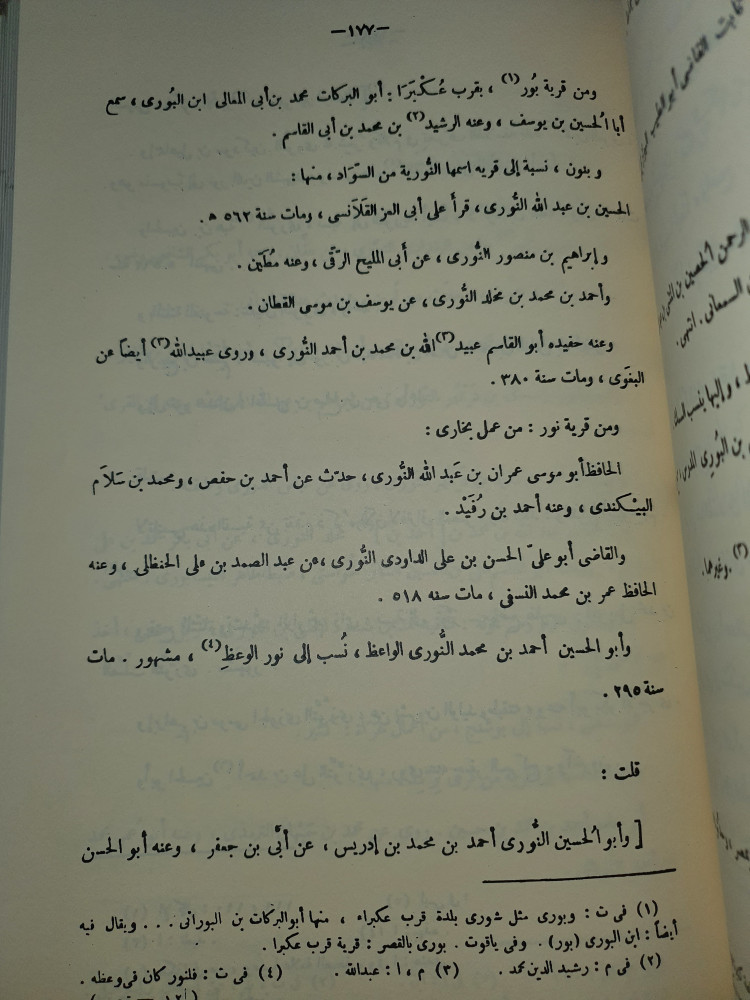 — ١٧٧ —
ومن قرية بُور (١) ، بقرب عُكْبَرَا : أبو البركات محمد بن أبى المعالى ابن البُورى ، سمع
أبا الحسين بن يوسف ، وعنه الرشيد (٢) بن محمد بن أبى القاسم .
و بنون ، نسبة إلى قريه اسمها النُّورية من السَّوَاد ، منها :
الحسين بن عبد الله النُّورى ، قرأ على أبى العز القَلَانسى ، ومات سنة ٥٦٢ هـ .
وإبراهيم بن منصور النُّورى ، عن أبى المليح الرَّقى ، وعنه مُطَيَّن .
وأحمد بن محمد بن مخلد النُّورى ، عن يوسف بن موسى القطان .
وعنه حفيده أبو القاسم عبيد (٣) الله بن محمد بن أحمد النُّورى ، وروى عبيد الله (٣) أيضاً عن
البغَوى ، ومات سنة ٣٨٠ .
ومن قرية نور : من عمل بخارى :
الحافظ أبو موسى عمران بن عَبد الله النُّورى ، حدّث عن أحمد بن حفص ، ومحمد بن سَلَام
البيْكندى ، وعنه أحمد بن رُفَيْد .
والقاضى أبو علىّ الحسن بن على الداودى النُّورى ، عن عبد الصمد بن على الحنظلى ، وعنه
الحافظ عمر بن محمد النسفى ، مات سنه ٥١٨ .
وأبو الحسين أحمد بن محمد النُّورى الواعظ ، نُسب إلى نور الوعظِ (٤) ، مشهور . مات
سنة ٢٩٥ .
قلت :
[ وأبو الحسين النُّورى أحمد بن محمد بن إدريس ، عن أبَّى بن جعفر ، وعنه أبو الحسن
(١) فى ت : وبورى مثل شورى بلدة قرب عكبراء ، منها أبو البركات بن البورانى . . . ويقال فيه
أيضاً : ابن البورى (بور) . وفى ياقوت . بورى بالقصر : قرية قرب عكبرا .
(٢) فى م : رشيد الدين محمد . (٣) م ، ا : عبدالله . (٤) فى ت : فلنور كان فى وعظه .